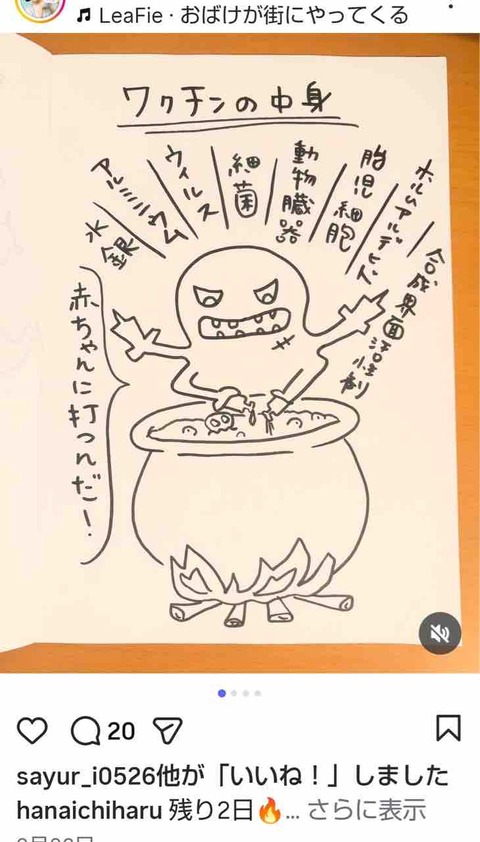 LeaFie · おばけが街にやってくる
ワクチンの中身
水銀
アルミニウム
ウィルス
細菌
動物臓器
胎児細胞
ホルムアルデヒド
合成界面活性剤
赤ちゃんに打つんだ！
20
sayur_i0526他が「いいね！」しました
hanaichiharu 残り2日🔥... さらに表示